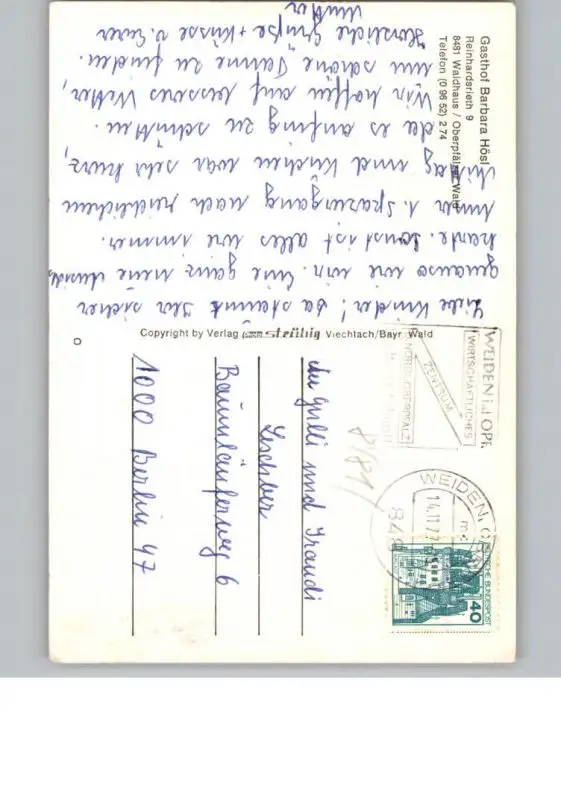 Gasthof Barbara Hösl
Reinhardsrieth 9
8481 Waldhaus / Oberpfälzer Wald
Telefon (0 96 52) 2 74
Liebe Kinder! Da staunt Ihr sicher
genauso wie wir. Eine ganz neue
Karte. Sonst ist alles wie immer.
Unser 1. Spaziergang nach reichlichem
Mittag und Kuchen war sehr kurz,
da es anfing zu schütten.
Wir hoffen auf besseres Wetter,
um schöne Tanne zu finden.
Herzliche Grüße + Küsse v. Eurer
Mutter
Copyright by Verlag Strühig Viechtach/Bayr. Wald
WEIDEN i.d. OPF.
WIRTSCHAFTLICHES
ZENTRUM
NÖRDL. OBERPFALZ
WEIDEN, O
14.11.77
848
DEUTSCHE BUNDESPOST
40
und Traudi
Leschber
Baumläuferweg 6
1000 Berlin 47